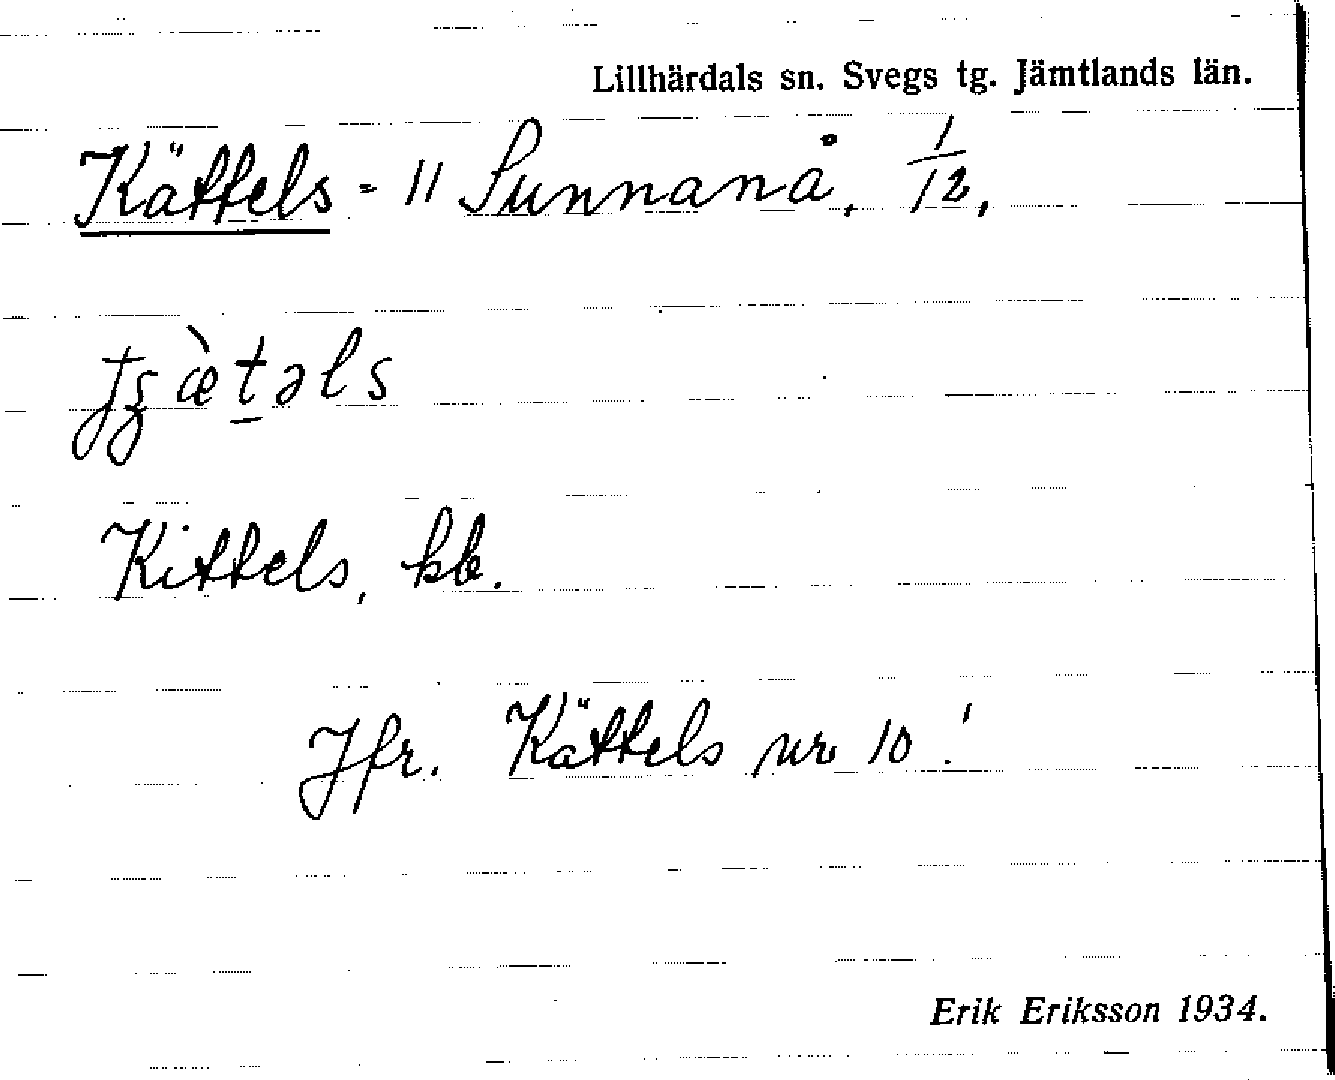 Lillhärdals sn. Svegs tg. Jämtlands län.
Kättels = 11 Sunnanå, 1/12,
Kittels, kb.
Jfr. Kättels nr 10!
Erik Eriksson 1934.